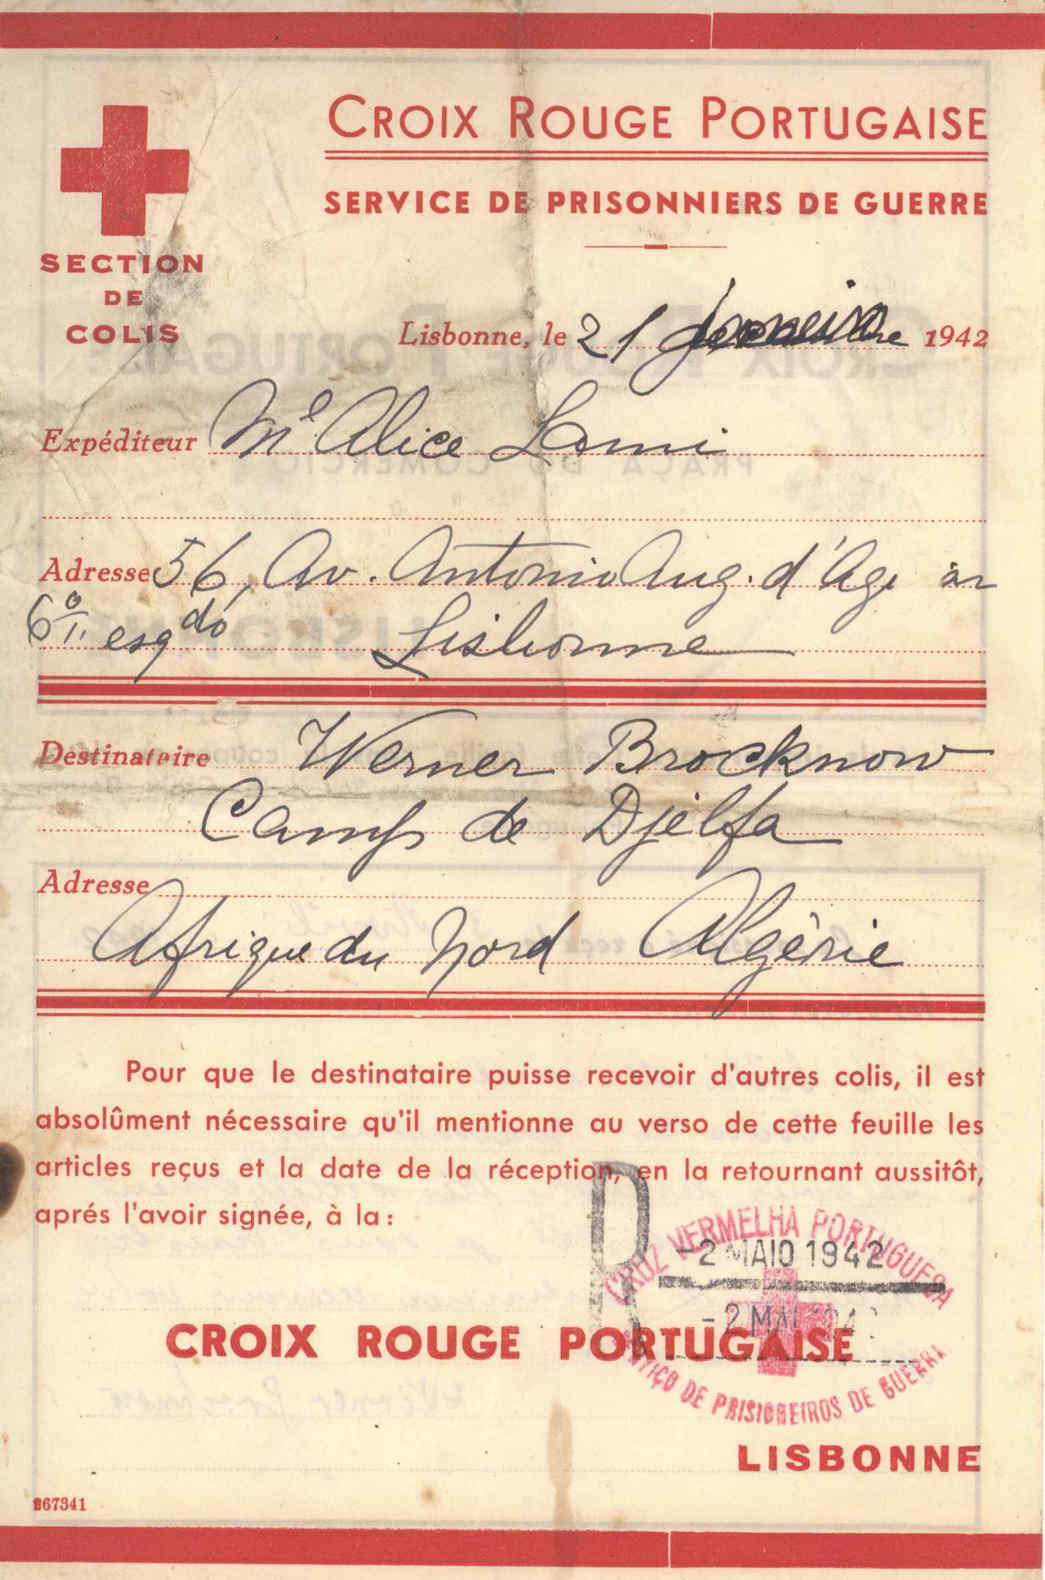 CROIX ROUGE PORTUGAISE
SERVICE DE PRISONNIERS DE GUERRE
SECTION
DE
COLIS
Lisbonne, le 21 1942
Expéditeur Me Alice Lami
Adresse 56, Av. Antonio Aug. d'Agiar
6º esqdo Lisbonne
Destinataire Werner Brocknow
Camp de Djelfa
Adresse
Afrique du Nord Algérie
Pour que le destinataire puisse recevoir d'autres colis, il est
absolûment nécessaire qu'il mentionne au verso de cette feuille les
articles reçus et la date de la réception, en la retournant aussitôt,
aprés l'avoir signée, à la:
R
CRUZ VERMELHA PORTUGUESA
-2 MAIO 1942
-2 MAI
CROIX ROUGE PORTUGAISE
DE PRISIONEIROS DE GUERRA
LISBONNE
867341